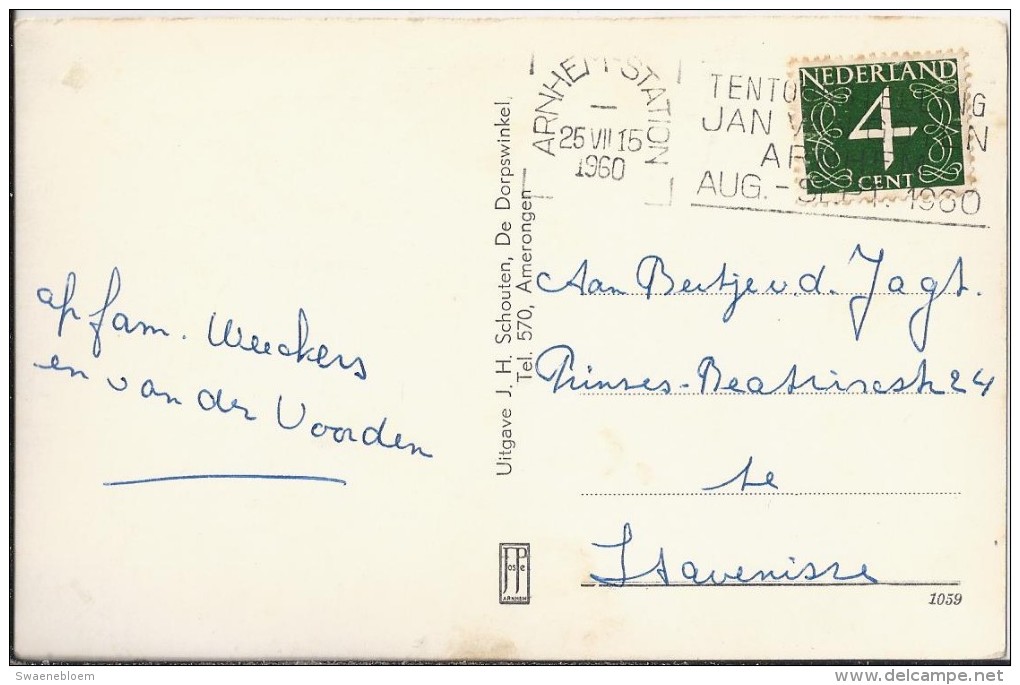 ARNHEM-STATION
25 VII 15
1960
JAN
AUG.-SEPT. 1960
NEDERLAND
4
CENT
fam. Weeckers
en van der Voorden
Uitgave J. H. Schouten, De Dorpswinkel,
Tel. 570, Amerongen
Aan Bertje v.d. Jagt.
Prinses-Beatrixestr 24
te
Stavenisse
JosPe
ARNHEM
1059
© Swaenebloem
www.delcampe.net